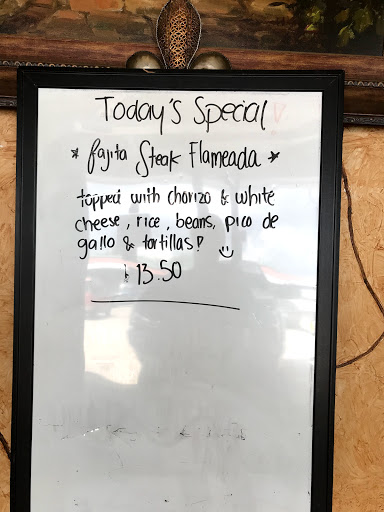 Today's Special!
* Fajita Steak Flameada *
topped with chorizo & white
cheese, rice, beans, pico de
gallo & tortillas!
$13.50